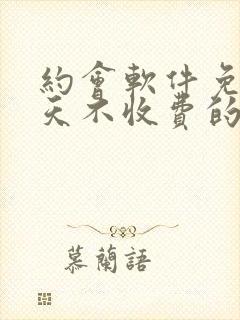 約會軟件免
天不收費的
慕蘭語